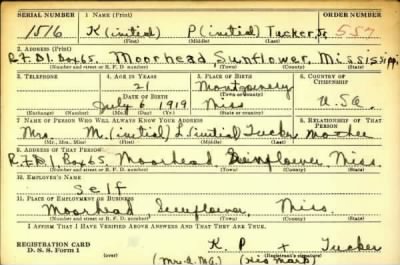 SERIAL NUMBER 1. NAME (Print) ORDER NUMBER
1516 K(initial) P(initial) Tucker, Jr 557
(First) (Middle) (Last)
2. ADDRESS (Print)
R.F.D1. Box65. Moorhead, Sunflower, Mississippi
(Number and street or R. F. D. number) (Town) (County) (State)
3. TELEPHONE 4. AGE IN YEARS 5. PLACE OF BIRTH 6. COUNTRY OF CITIZENSHIP
21 Montgomery
DATE OF BIRTH (Town or county)
July 6 1919 Miss U.S.A.
(Exchange) (No.) (Mo.) (Day) (Yr.) (State or country)
7. NAME OF PERSON WHO WILL ALWAYS KNOW YOUR ADDRESS 8. RELATIONSHIP OF THAT PERSON
Mrs. M.(initial) L(initial) Tucker mother
(Mr., Mrs., Miss) (First) (Middle) (Last)
9. ADDRESS OF THAT PERSON
R.F.D1 Box65, Moorhead, Sunflower, Miss.
(Number and street or R. F. D. number) (Town) (County) (State)
10. EMPLOYER'S NAME
Self
11. PLACE OF EMPLOYMENT OR BUSINESS
Moorhead, Sunflower, Miss.
(Number and street or R. F. D. number) (Town) (County) (State)
I AFFIRM THAT I HAVE VERIFIED ABOVE ANSWERS AND THAT THEY ARE TRUE.
K. P. + Tucker
REGISTRATION CARD
D. S. S. Form 1 (over) (Registrant's signature)
(His mark)